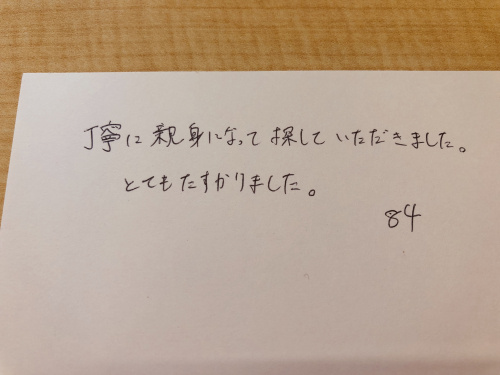 丁寧に親身になって探していただきました。
とてもたすかりました。
84